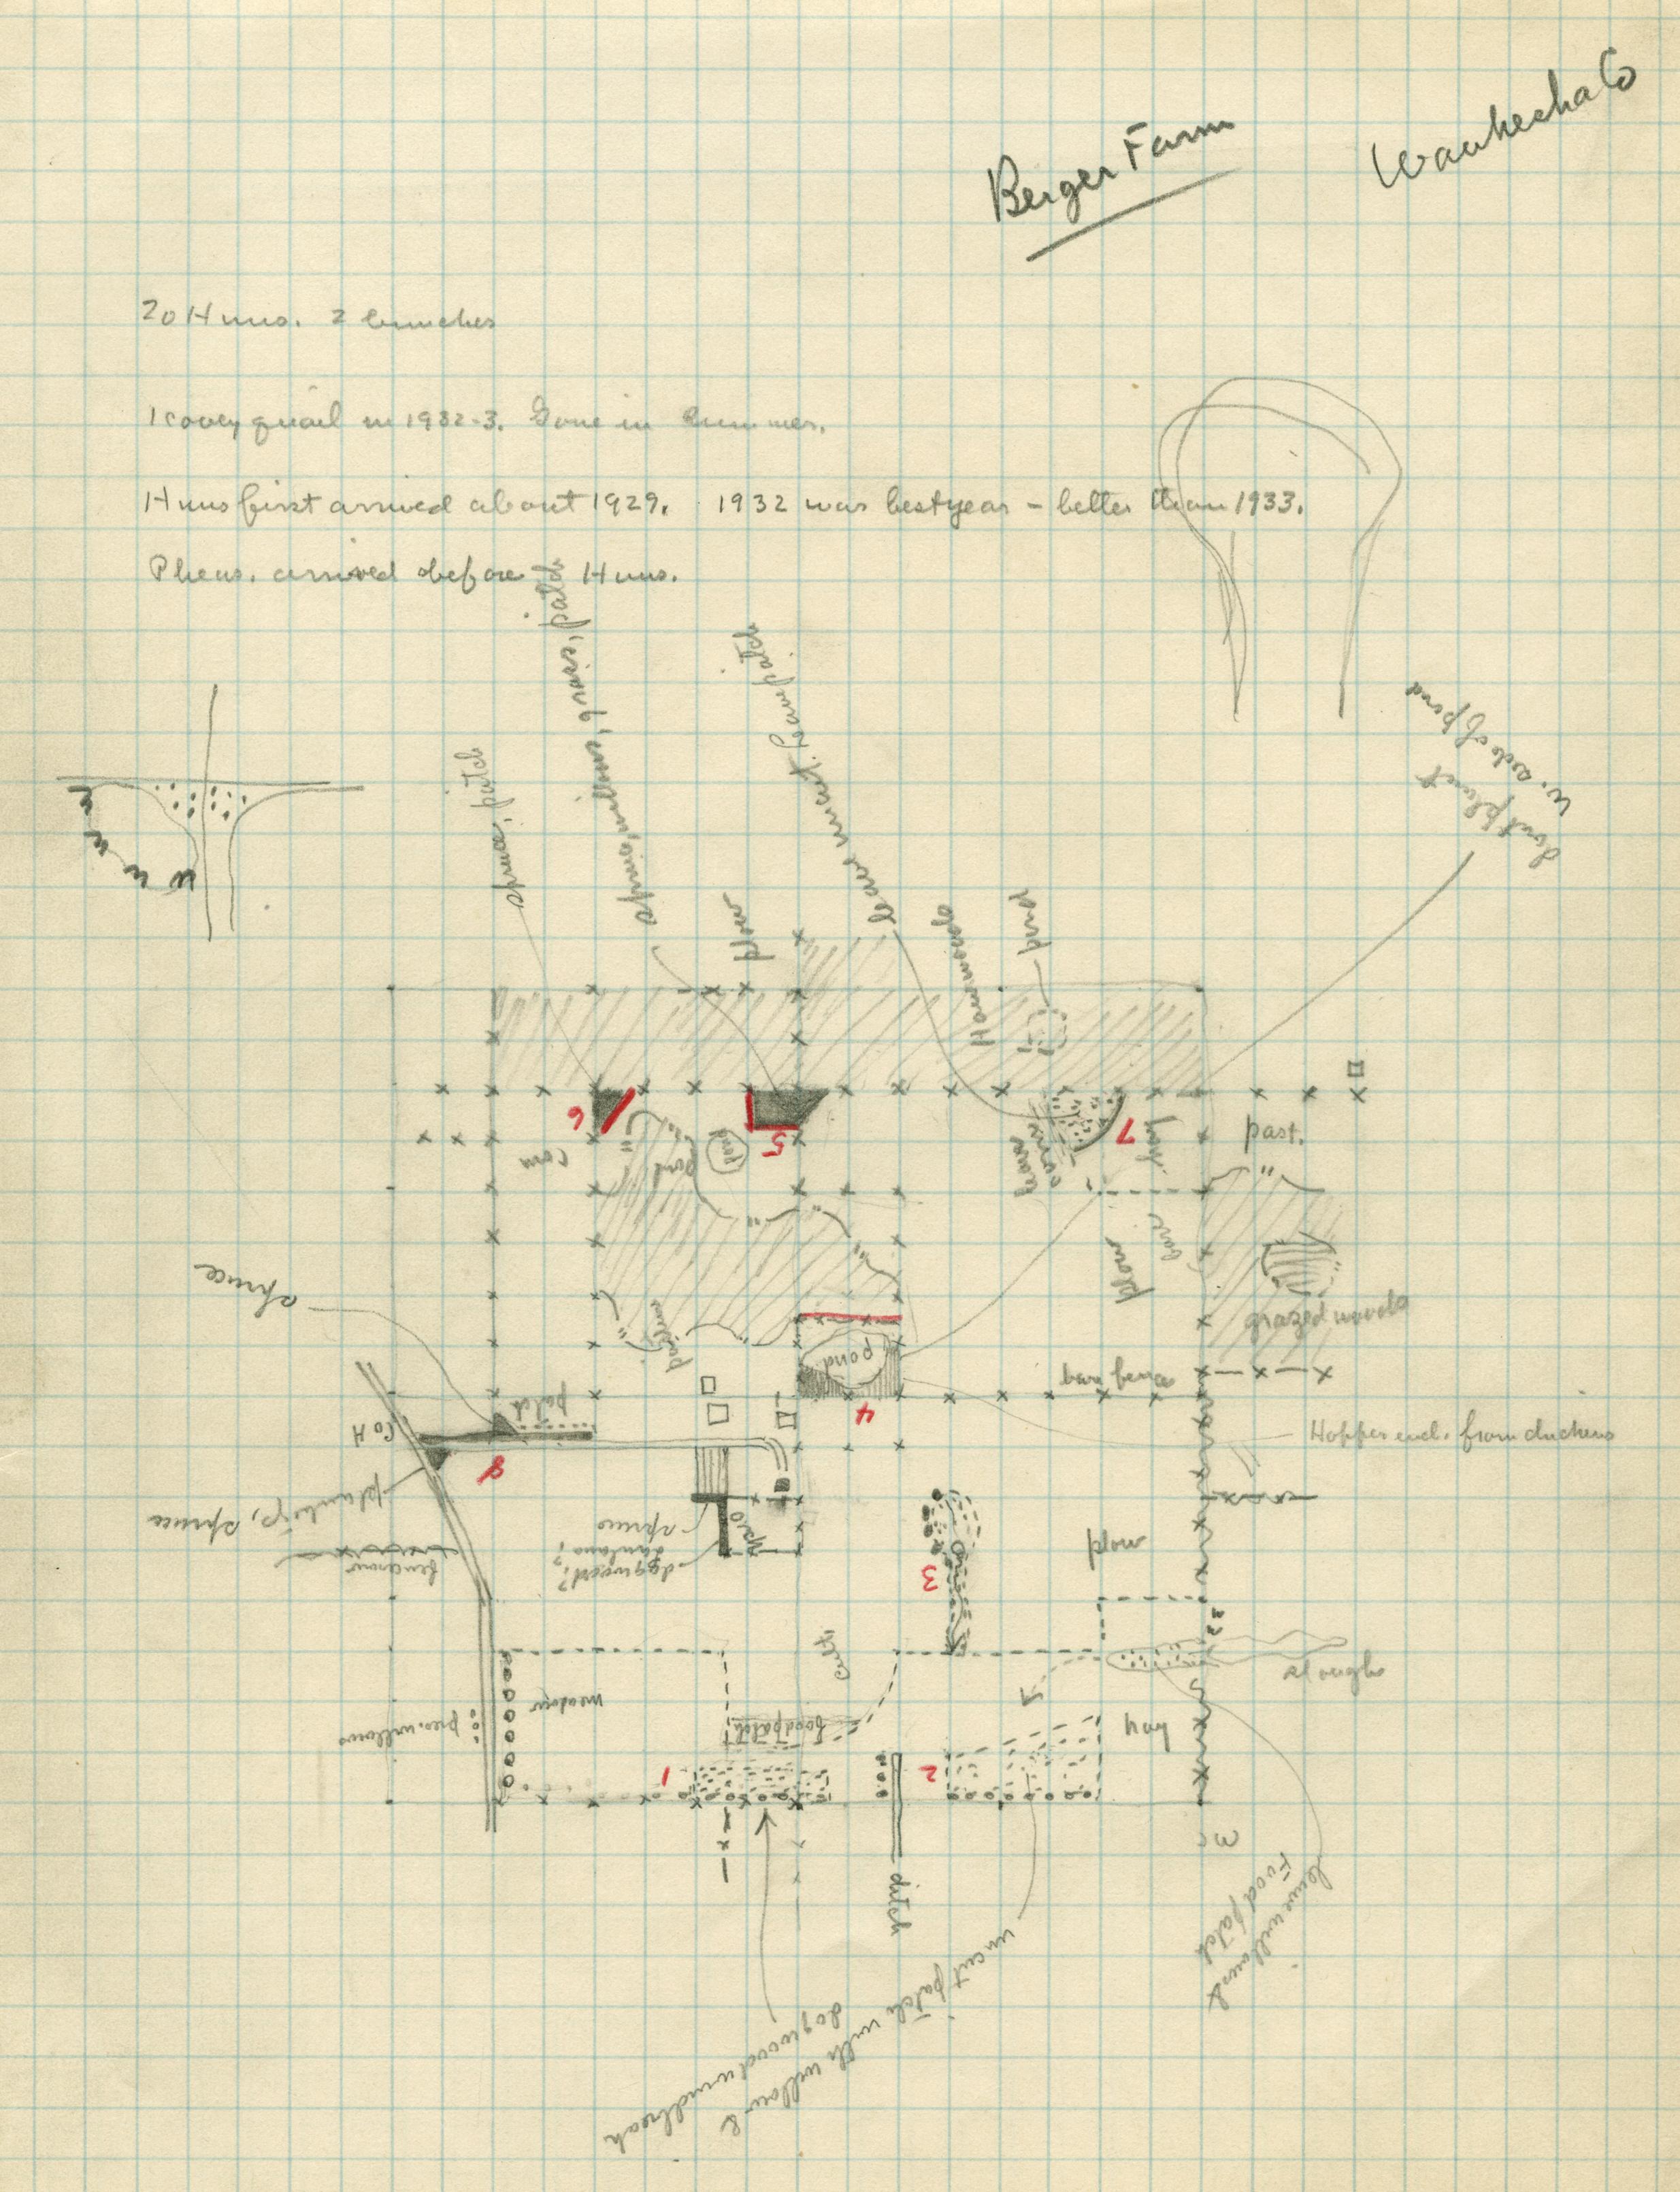 Waukesha Co
Berger Farm
20 Huns. 2 bunches
1 covey quail in 1932-3. Gone in summer.
Huns first arrived about 1929. 1932 was best year - better than 1933.
Pheas. arrived before Huns.
spruce, patch
spruce, willows, grass, patch
plow
leave uncut. Leave patch
Hardwoods
pond
Dont plant
w. side of pond
6
5
7
corn
pond
pond
leave
corn
hay
past.
plow
bare
grazed woods
pasture
pond
4
bare fence
Hopper end. from chickens
spruce
patch
Co H
8
plant up, spruce
fencerow
spruce
dogwood?
3
plow
sloughs
cult.
meadow
pres. willows
food patch
1
2
hay
ditch
leave willows &
Food patch
uncut patch with willow &
dogwood windbreak